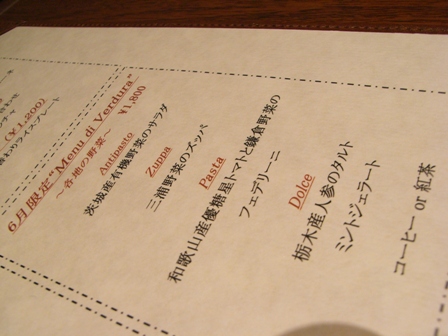 (¥1,200)
6月限定“Menu di Verdura”
～各地の野菜～ ¥1,800
Antipasto
茨城産有機野菜のサラダ
Zuppa
三浦野菜のズッパ
Pasta
和歌山産優糖星トマトと鎌倉野菜の
フェデリーニ
Dolce
栃木産人参のタルト
ミントジェラート
コーヒー or 紅茶